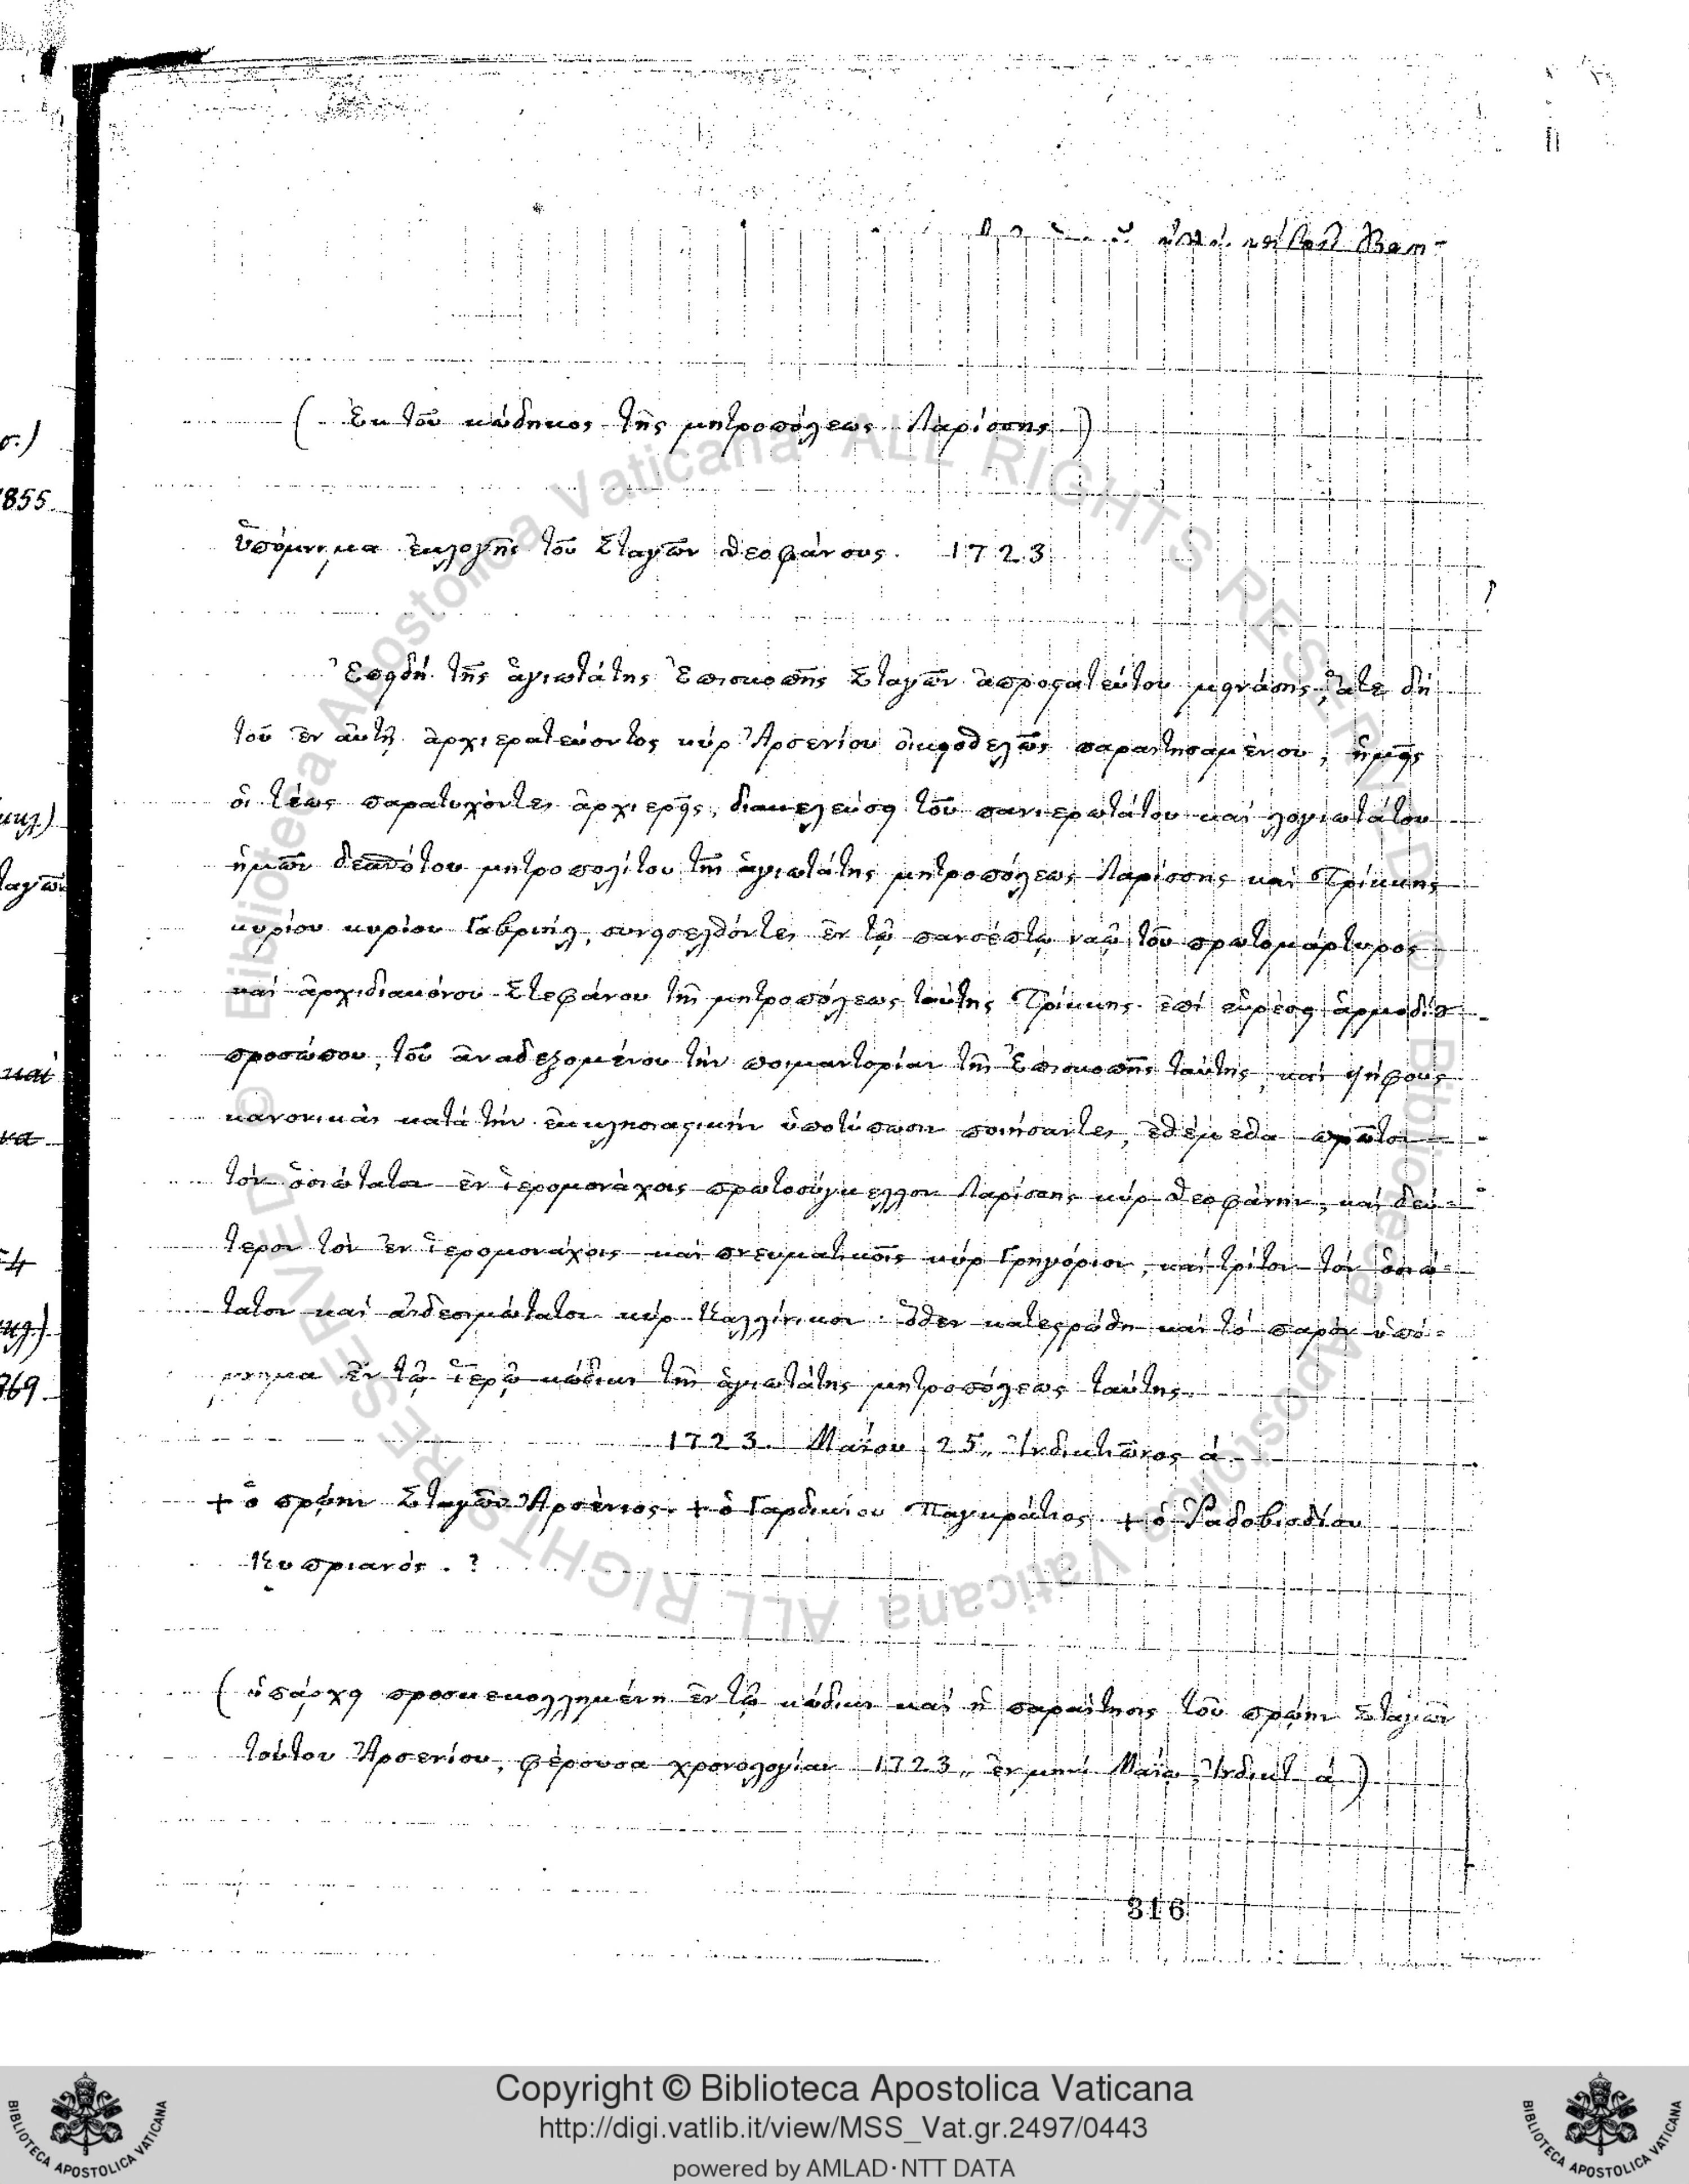 ( Ἐκ τοῦ κώδηκος τῆς μητροπόλεως Λαρίσσης )
ὑπόμνημα ἐκλογῆς τοῦ Σταγῶν Θεοφάνους. 1723
Ἐπειδή τῆς ἁγιωτάτης Ἐπισκοπῆς Σταγῶν ἀπροστατεύτου μεινάσης, ἅτε δή
τοῦ ἐν αὐτῇ ἀρχιερατεύοντος κύρ Ἀρσενίου οἰκειοθελῶς παραιτησαμένου, ἡμεῖς
οἱ τέως παρατυχόντες ἀρχιερεῖς, διακελεύσει τοῦ πανιερωτάτου καί λογιωτάτου
ἡμῶν δεσπότου μητροπολίτου τῆς ἁγιωτάτης μητροπόλεως Λαρίσσης καί Τρίκκης
κυρίου κυρίου Γαβριήλ, συνεισελθόντες ἐν τῷ πανσέπτῳ ναῷ τοῦ πρωτομάρτυρος
καί ἀρχιδιακόνου Στεφάνου τῆς μητροπόλεως ταύτης Τρίκκης ἐπί εὑρέσει ἁρμοδίου
προσώπου, τοῦ ἀναδεξομένου τήν ποιμαντορίαν τῆς Ἐπισκοπῆς ταύτης, καί ψήφους
κανονικάς κατά τήν ἐκκλησιαστικήν ὑποτύπωσιν ποιήσαντες, ἐθέμεθα πρῶτον
τόν ὁσιώτατον ἐν ἱερομονάχοις πρωτοσύγκελλον Λαρίσσης κύρ Θεοφάνην, καί δεύ=
τερον τόν ἐν ἱερομονάχοις καί πνευματικοῖς κύρ Γρηγόριον, καί τρίτον τόν ὁσιώ=
τατον καί αἰδεσιμώτατον κύρ Καλλίνικον. Ὅθεν κατεστρώθη καί τό παρόν ὑπό=
μνημα ἐν τῷ ἱερῷ κώδικι τῆς ἁγιωτάτης μητροπόλεως ταύτης.
1723. Μαΐου 25,, Ἰνδικτιῶνος ά.
+ ὁ πρώην Σταγῶν Ἀρσένιος. + ὁ Γαρδικίου Παγκράτιος + ὁ Ῥαδοβισδίου
Κυπριανός. ?
( ὑπάρχει προσκεκολλημένη ἐν τῷ κώδικι καί ἡ παραίτησις τοῦ πρώην Σταγῶν
τούτου Ἀρσενίου, φέρουσα χρονολογίαν 1723,, ἐν μηνί Μαΐῳ, Ἰνδικτ. ά )
316
σ.)
1855
ταγῶν
καί
κα
769
Copyright © Biblioteca Apostolica Vaticana
http://digi.vatlib.it/view/MSS_Vat.gr.2497/0443
powered by AMLAD·NTT DATA
BIBLIOTECA APOSTOLICA VATICANA
BIBLIOTECA APOSTOLICA VATICANA
© Biblioteca Apostolica Vaticana ALL RIGHTS RESERVED
© Biblioteca Apostolica Vaticana ALL RIGHTS RESERVED